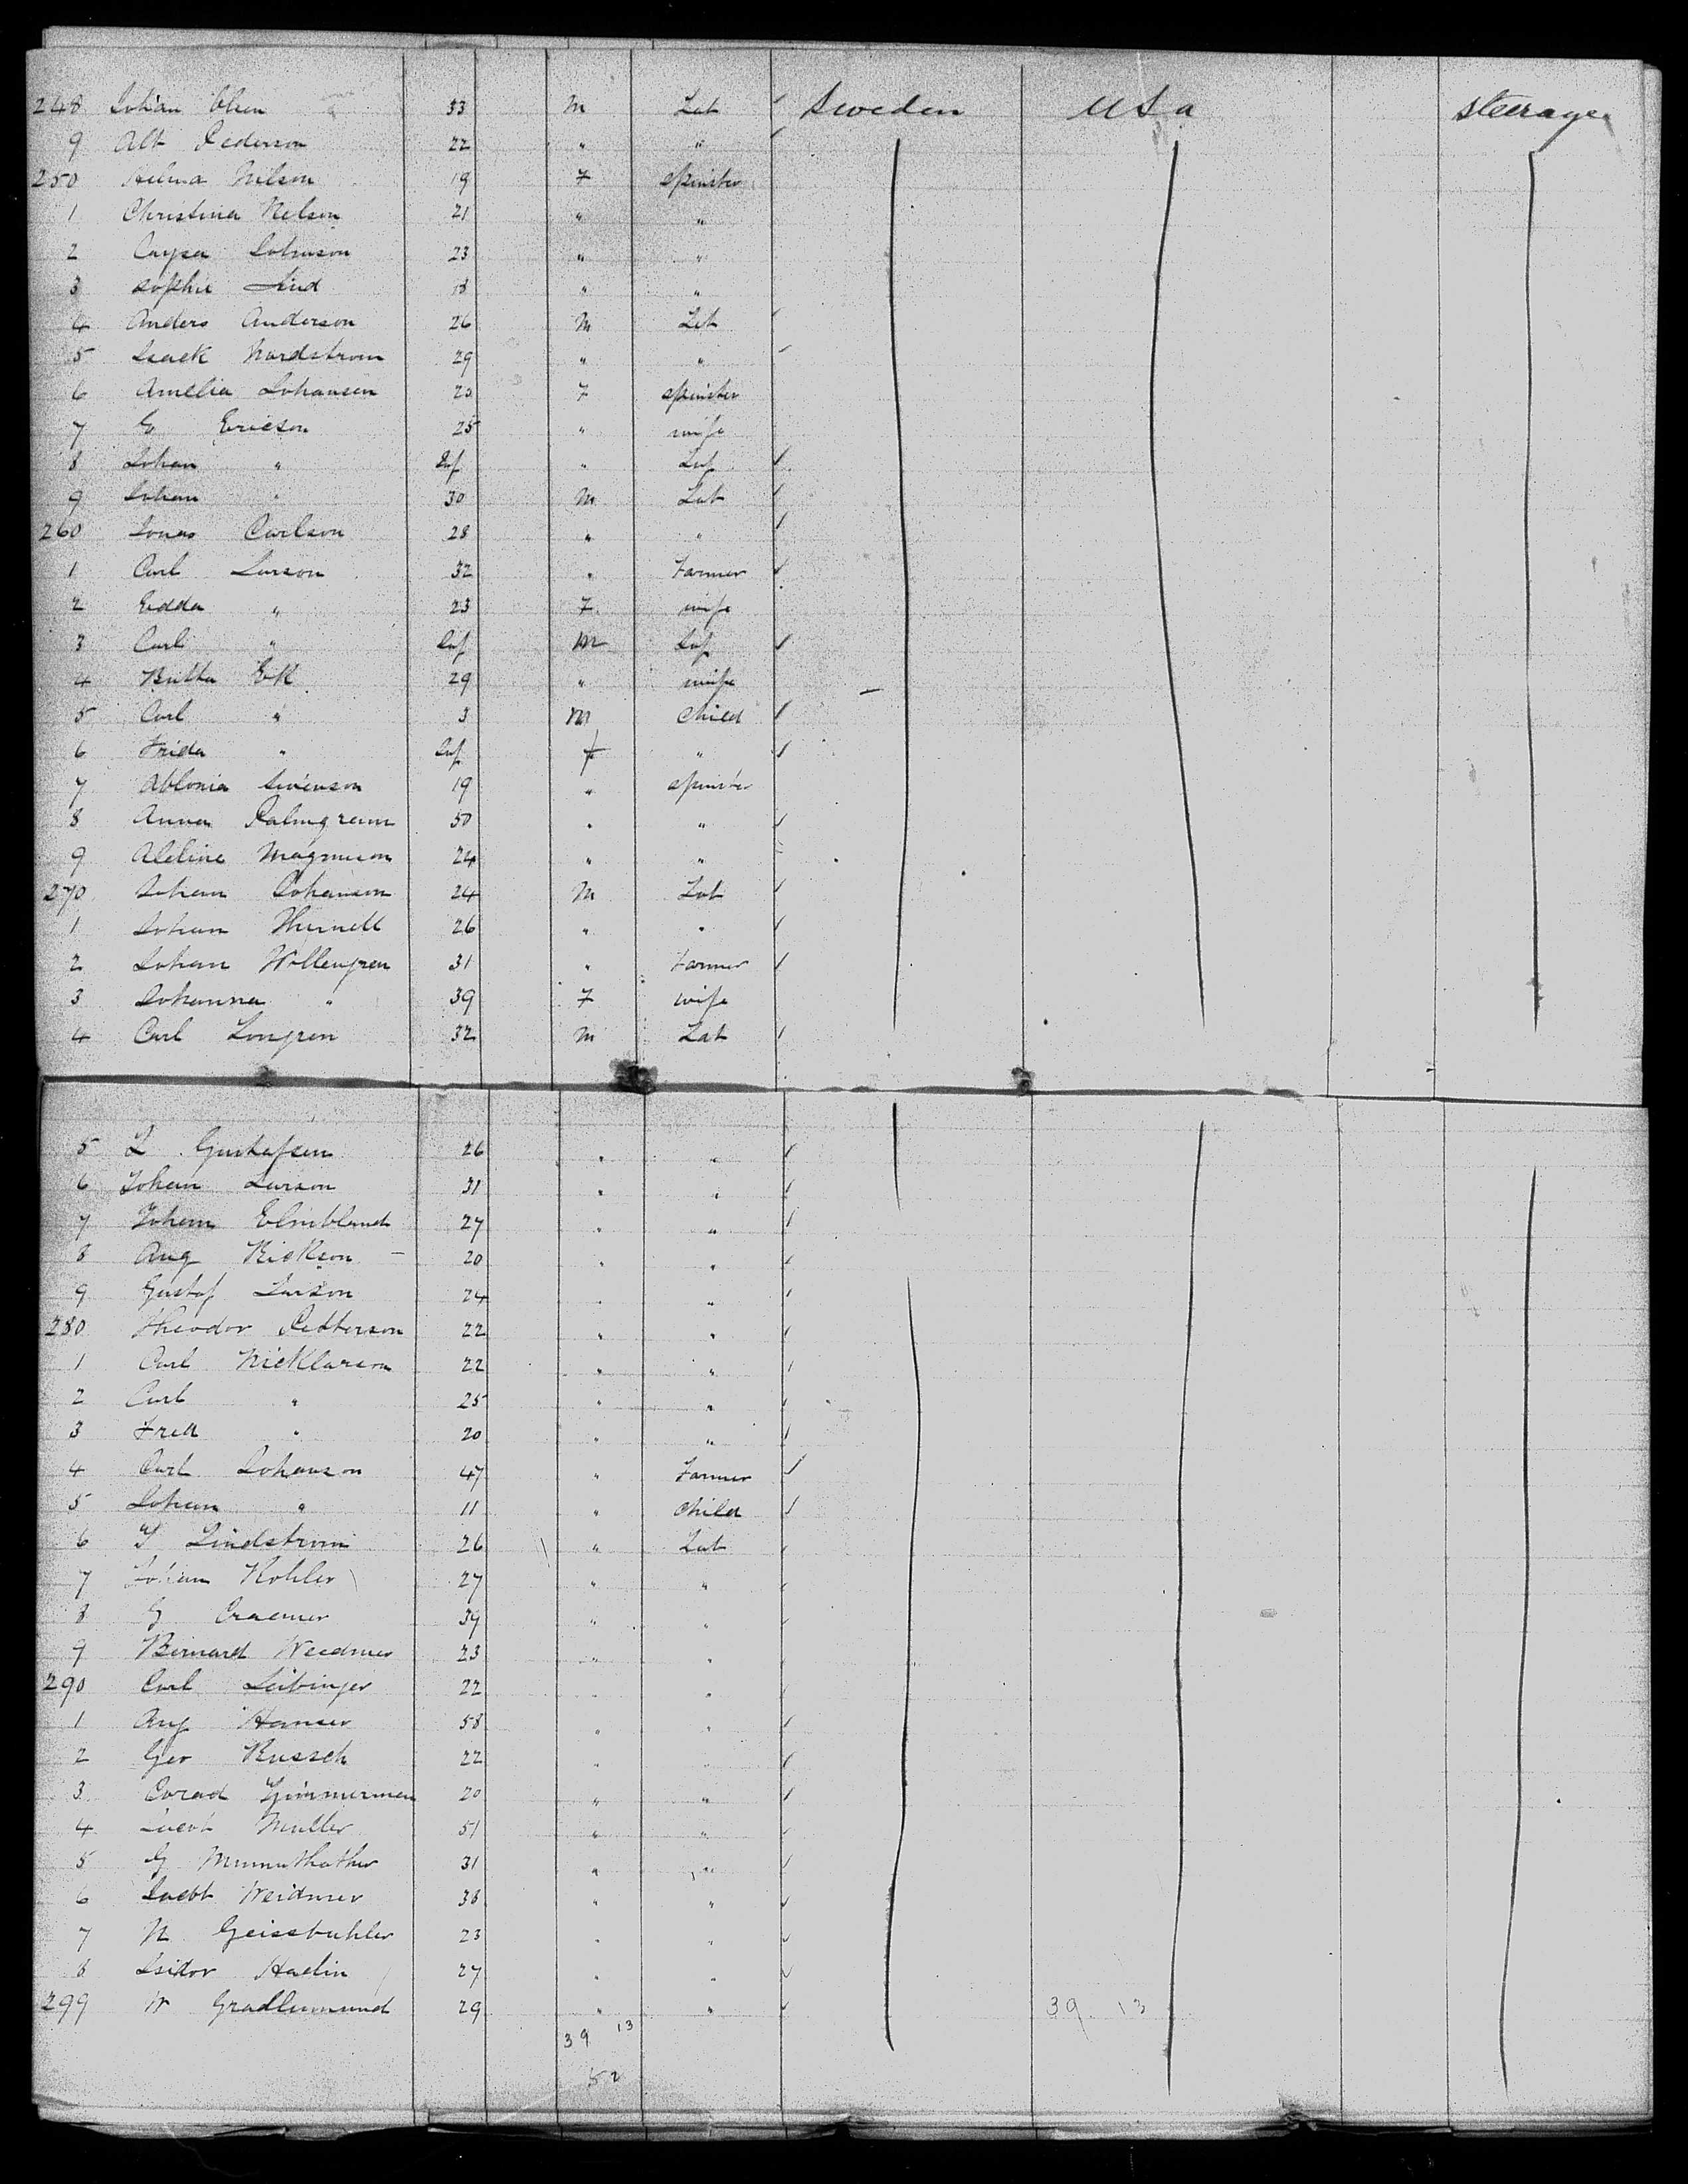 248 Johan Olsen 33 M Lab Sweden USa Steerage
9 Alb Pederson 22 " "
250 Hilma Nilson 19 F Spinster
1 Christina Nelson 21 " "
2 Caysa Johnson 23 " "
3 Sophie Lind 18 " "
4 Anders Anderson 26 M Lab
5 Isack Nordstrom 29 " "
6 Amelia Johansen 20 F Spinster
7 G Ericson 25 " wife
8 Johan " Inf " Inf
9 Johan " 30 M Lab
260 Jonas Carlson 28 " "
1 Carl Larson 32 " Farmer
2 Edda " 23 F wife
3 Carl " Inf M Inf
4 Butta Ek 29 " wife
5 Carl " 3 M Child
6 Frida " Inf F "
7 Ablonia Swenson 19 " Spinster
8 Anna Palmgren 50 " "
9 Aleline Magnuson 24 " "
270 Johan Johanson 24 M Lab
1 Johan 26 " "
2 Johan Wollengren 31 " Farmer
3 Johanna " 39 F wife
4 Carl Longren 32 M Lab
5 L Gustafsen 26 " "
6 Johan Larson 31 " "
7 Johan 27 " "
8 Aug Rickson 20 " "
9 Gustaf Larson 24 " "
280 Theodor Petterson 22 " "
1 Carl Nicklarson 22 " "
2 Carl " 25 " "
3 Fred " 20 " "
4 Carl Johanson 47 " Farmer
5 Johan " 11 " Child
6 Lindstrom 26 " Lab
7 Johan Kohler 27 " "
8 G Craemer 39 " "
9 Bernard Weedmer 23 " "
290 Carl Leibinger 22 " "
1 Aug Hanser 58 " "
2 Geo Russch 22 " "
3 Corad Zimmerman 20 " "
4 Jacob Muller 51 " "
5 G 31 " "
6 Jacob Weidmer 38 " "
7 N Geissbuhler 23 " "
8 Isidor Haelin 27 " "
299 W Gradlemund 29 " " 39 13
39 13
52